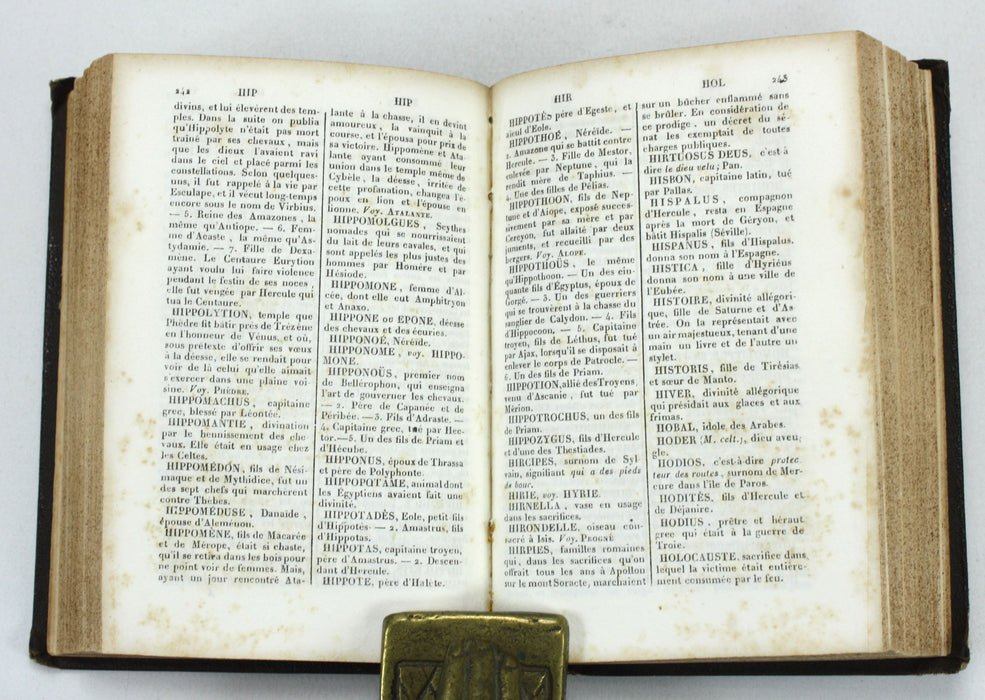 242 HIP
divins, et lui élevèrent des tem-
ples. Dans la suite on publia
qu'Hippolyte n'était pas mort
traîné par ses chevaux, mais
que les dieux l'avaient ravi
dans le ciel et placé parmi les
constellations. Selon quelques-
uns, il fut rappelé à la vie par
Esculape, et il vécut long-temps
encore sous le nom de Virbius.
— 5. Reine des Amazones, la
même qu'Antiope. — 6. Fem-
me d'Acaste, la même qu'As-
tydamie. — 7. Fille de Dexa-
mène. Le Centaure Eurytion
ayant voulu lui faire violence
pendant le festin de ses noces,
elle fut vengée par Hercule qui
tua le Centaure.
HIPPOLYTION, temple que
Phèdre fit bâtir près de Trézène
en l'honneur de Vénus, et où,
sous prétexte d'offrir ses vœux
à la déesse, elle se rendait pour
voir de là celui qu'elle aimait
s'exercer dans une plaine voi-
sine. Voy. PHÈDRE.
HIPPOMACHUS, capitaine
grec, blessé par Léontée.
HIPPOMANTIE, divination
par le hennissement des che-
vaux. Elle était en usage chez
les Celtes.
HIPPOMÉDON, fils de Nési-
maque et de Mythidice, fut un
des sept chefs qui marchèrent
contre Thèbes.
HIPPOMÉDUSE, Danaïde,
épouse d'Alcménon.
HIPPOMÈNE, fils de Macarée
et de Mérope, était si chaste,
qu'il se retira dans les bois pour
ne point voir de femmes. Mais,
ayant un jour rencontré Ata-
HIP
lante à la chasse, il en devint
amoureux, la vainquit à la
course, et l'épousa pour prix de
sa victoire. Hippomène et Ata-
lante ayant consommé leur
union dans le temple même de
Cybèle, la déesse, irritée de
cette profanation, changea l'é-
poux en lion et l'épouse en
lionne. Voy. ATALANTE.
HIPPOMOLGUES, Scythes
nomades qui se nourrissaient
du lait de leurs cavales, et qui
sont appelés les plus justes des
hommes par Homère et par
Hésiode.
HIPPOMONE, femme d'Al-
cée, dont elle eut Amphitryon
et Anaxo.
HIPPONE ou EPONE, déesse
des chevaux et des écuries.
HIPPONOÉ, Néréide.
HIPPONOME, voy. HIPPO-
MONE.
HIPPONOÜS, premier nom
de Bellérophon, qui enseigna
l'art de gouverner les chevaux.
— 2. Père de Capanée et de
Péribée. — 3. Fils d'Adraste. —
4. Capitaine grec, tué par Hec-
tor. — 5. Un des fils de Priam et
d'Hécube.
HIPPONUS, époux de Thrassa
et père de Polyphonte.
HIPPOPOTAME, animal dont
les Egyptiens avaient fait une
divinité.
HIPPOTADÈS, Eole, petit fils
d'Hippotès. — 2. Amastrus, fils
d'Hippotas.
HIPPOTAS, capitaine troyen,
père d'Amastrus. — 2. Descen-
dant d'Hercule.
HIPPOTE, père d'Halète.
HIR
HIPPOTÈS père d'Egeste, et
aïeul d'Eole.
HIPPOTHOÉ, Néréide. —
2. Amazone qui se battit contre
Hercule. — 3. Fille de Mestor,
enlevée par Neptune, qui la
rendit mère de Taphius. —
4. Une des filles de Pélias.
HIPPOTHOON, fils de Nep-
tune et d'Alope, exposé succes-
sivement par sa mère et par
Cercyon, fut allaité par deux
juments, et recueilli par des
bergers. Voy. ALOPE.
HIPPOTHOÜS, le même
qu'Hippothoon. — Un des cin-
quante fils d'Égyptus, époux de
Gorgé. — 3. Un des guerriers
qui se trouvèrent à la chasse du
sanglier de Calydon. — 4. Fils
d'Hippocoon. — 5. Capitaine
troyen, fils de Léthus, fut tué
par Ajax, lorsqu'il se disposait à
enlever le corps de Patrocle. —
6. Un des fils de Priam.
HIPPOTION, allié des Troyens,
venu d'Ascanie, fut tué par
Mérion.
HIPPOTROCHUS, un des fils
de Priam.
HIPPOZYGUS, fils d'Hercule
et d'une des Thestiades.
HIRCIPES, surnom de Syl-
vain, signifiant qui a des pieds
de bouc.
HIRIE, voy. HYRIE.
HIRNELLA, vase en usage
dans les sacrifices.
HIRONDELLE, oiseau con-
sacré à Isis. Voy. PROGNÉ
HIRPIES, familles romaines
qui, dans les sacrifices qu'on
offrait tous les ans à Apollon
sur le mont Soracte, marchaient
HOL 243
sur un bûcher enflammé sans
se brûler. En considération de
ce prodige, un décret du sé-
nat les exemptait de toutes
charges publiques.
HIRTUOSUS DEUS, c'est-à
dire le dieu velu; Pan.
HISBON, capitaine latin, tué
par Pallas.
HISPALUS, compagnon
d'Hercule, resta en Espagne
après la mort de Géryon, et
bâtit Hispalis (Séville).
HISPANUS, fils d'Hispalus,
donna son nom à l'Espagne.
HISTICA, fille d'Hyriéus
donna son nom à une ville de
l'Eubée.
HISTOIRE, divinité allégori-
que, fille de Saturne et d'As-
trée. On la représentait avec
un air majestueux, tenant d'une
main un livre et de l'autre un
stylet.
HISTORIS, fille de Tirésias
et sœur de Manto.
HIVER, divinité allégorique
qui présidait aux glaces et aux
frimas.
HOBAL, idole des Arabes.
HODER (M. celt.), dieu aveu-
gle.
HODIOS, c'est-à-dire protec-
teur des routes, surnom de Mer-
cure dans l'île de Paros.
HODITÈS, fils d'Hercule et
de Déjanire.
HODIUS, prêtre et héraut
grec qui était à la guerre de
Troie.
HOLOCAUSTE, sacrifice dans
lequel la victime était entière-
ment consumée par le feu.